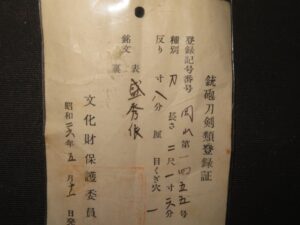 銃砲刀剣類登録証
登録記号番号 岡山第一四五五号
種別 刀 長さ 二尺一寸六分
反り 寸八分 厘 目くぎ穴 一
銘文 表 盛秀俊
裏
文化財保護委員
昭和二六年五月 日発